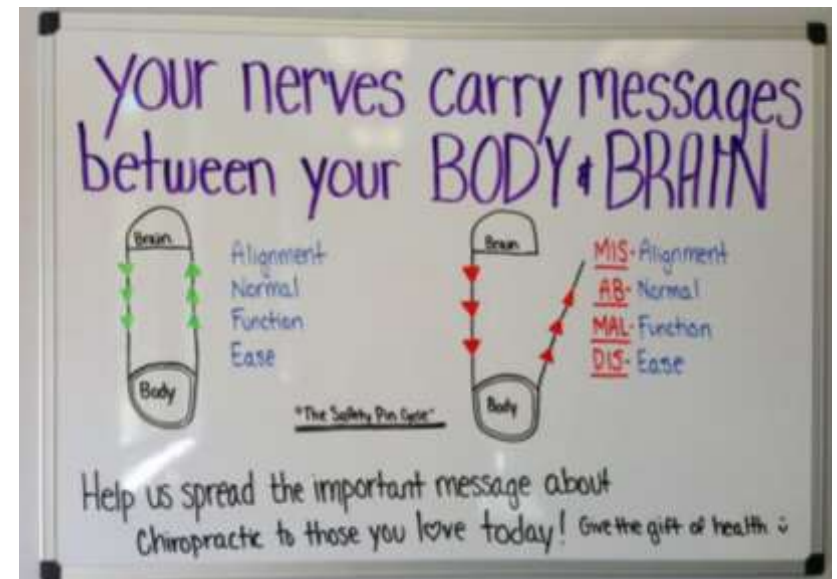 Your nerves carry messages
between your BODY & BRAIN
Brain
Alignment
Normal
Function
Ease
Body
Brain
MIS-Alignment
AB-Normal
MAL-Function
DIS-Ease
Body
"The Safety Pin Cycle"
Help us spread the important message about
Chiropractic to those you love today! Give the gift of health